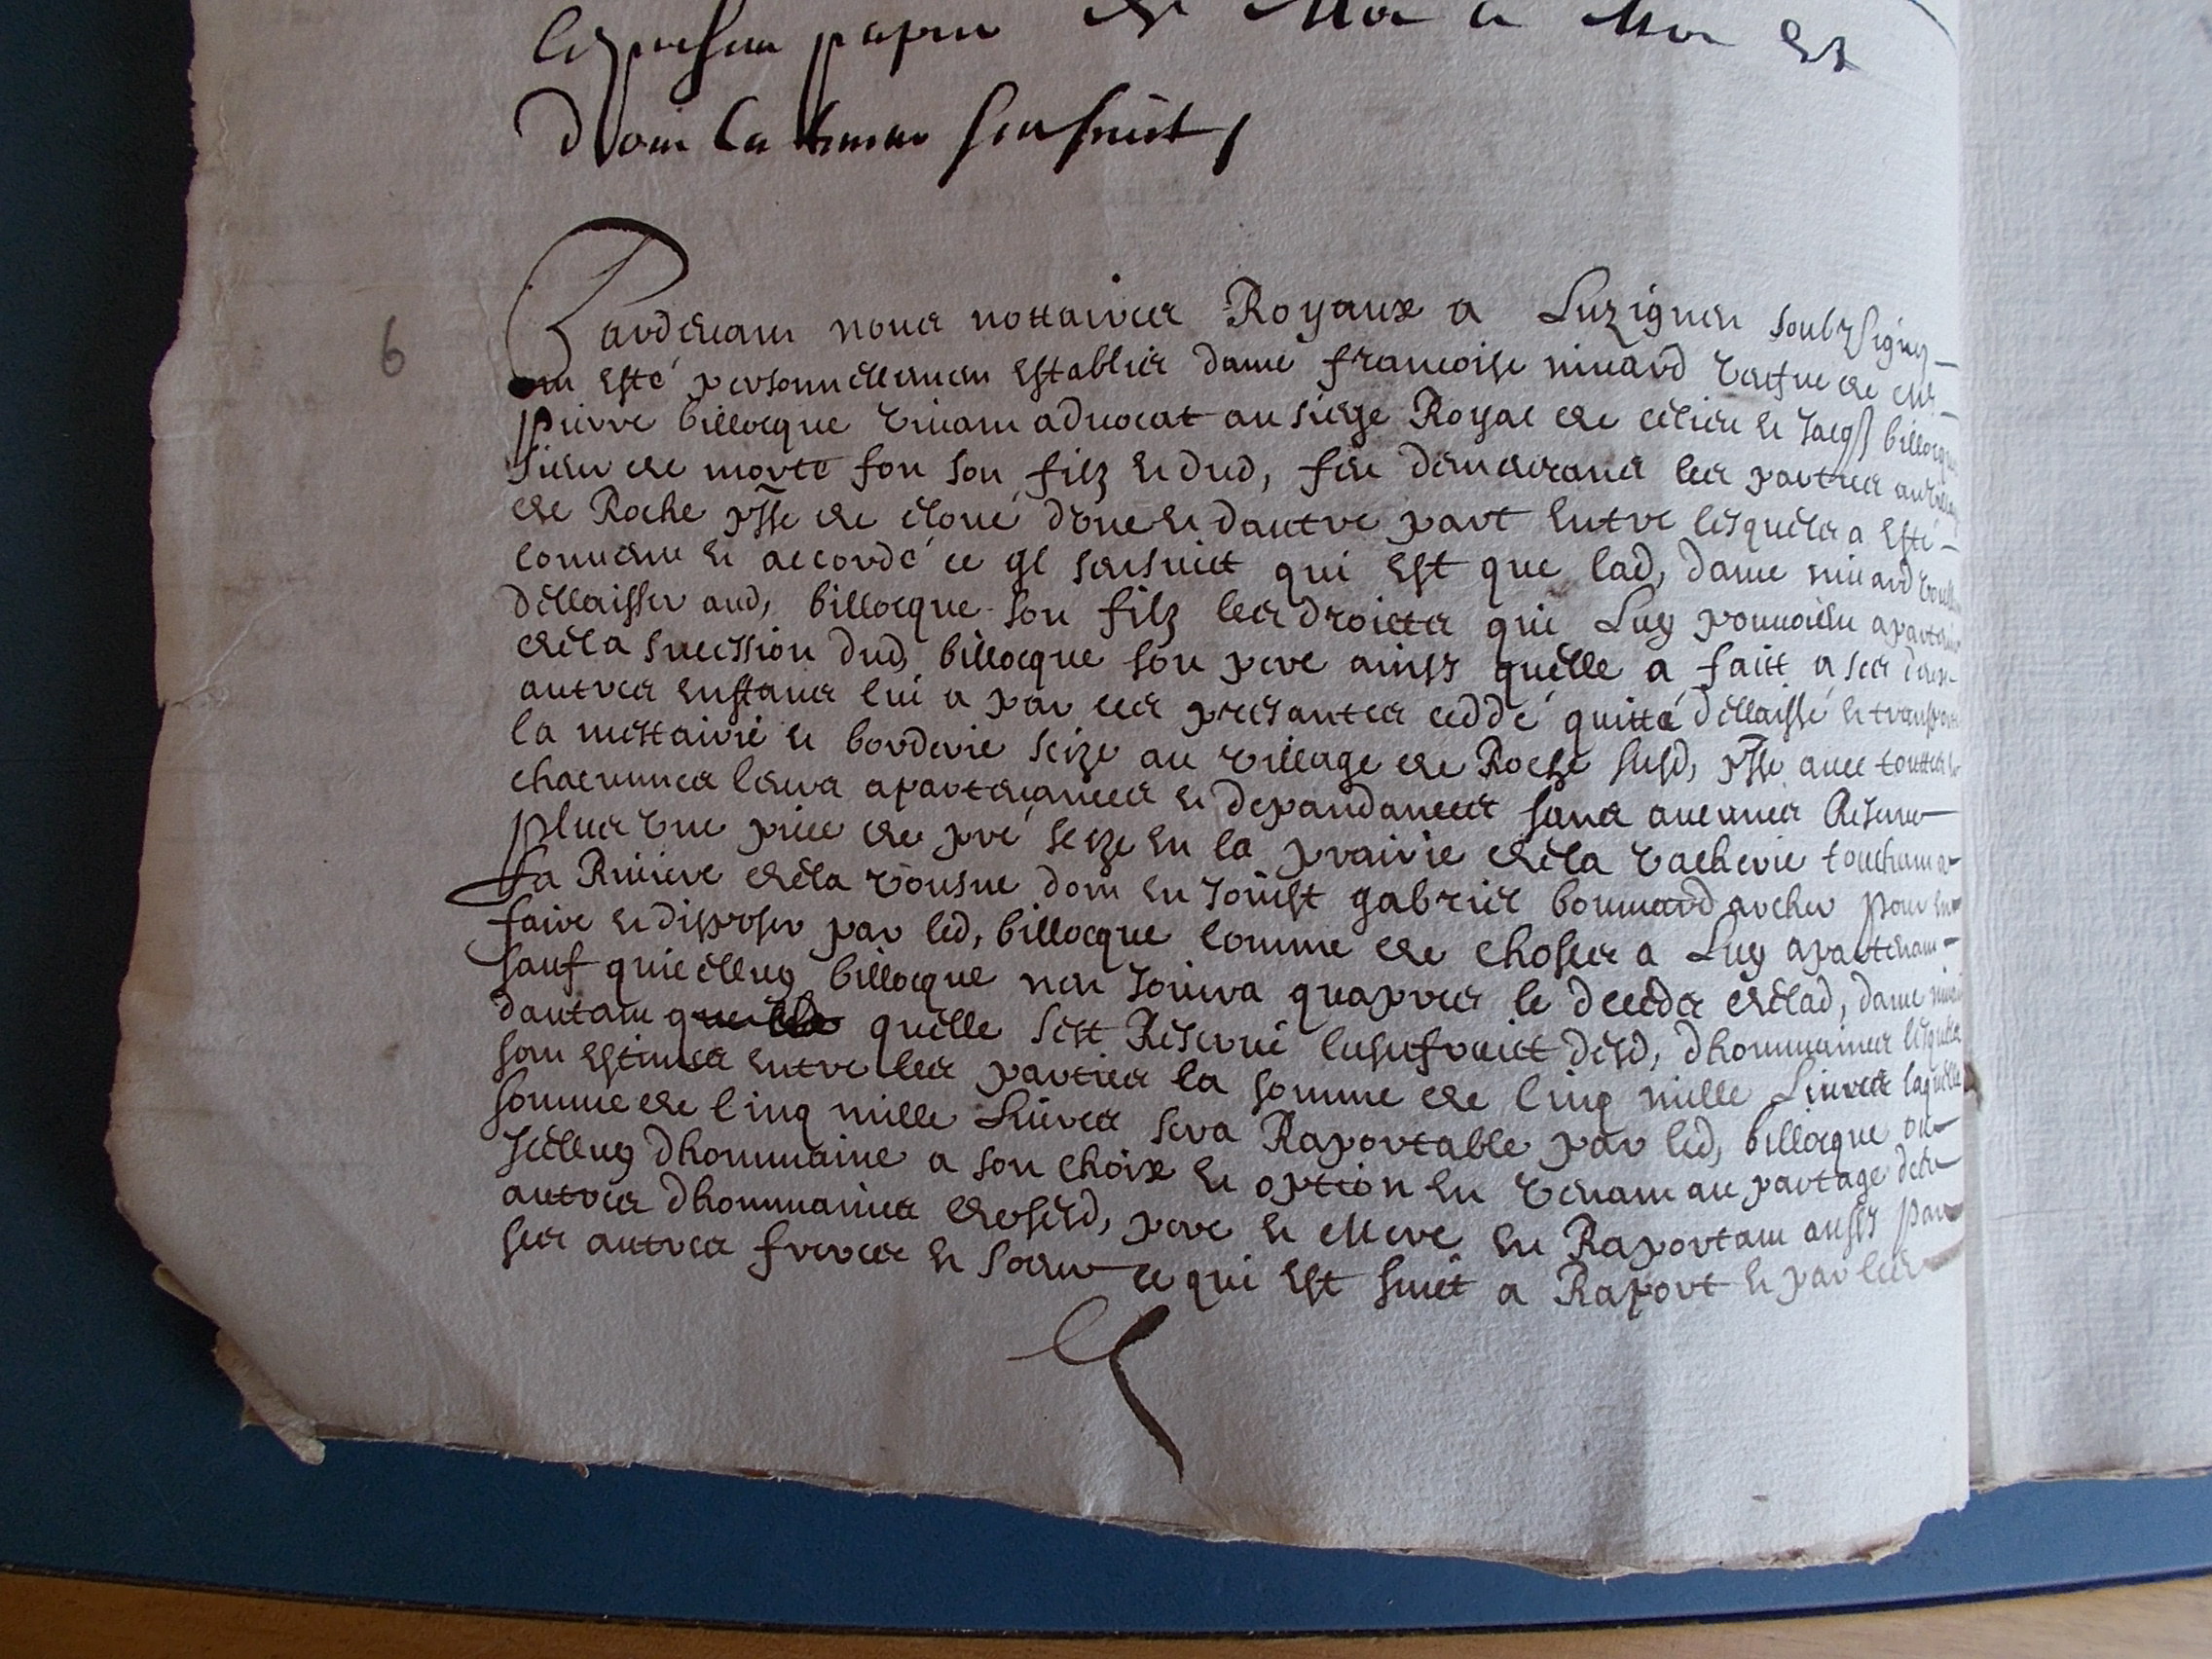 papier
dont la teneur sensuict
6
Pardevant nous nottaires Royaux a Luzignen soubzsignez
ont esté personnellement establies dame francoise niuard veufve de Me
pierre billocque vivant advocat au siege Royal de celieu et Jacqs billocque
sieur de morte fon son filz et dud, feu demeurans les parties au village
de Roche psse de cloué dune et dautre part entre lesquelles a esté
convenu et accordé ce ql sensuict qui est que lad, dame niuard
dellaisser aud, billocque son filz les droictz qui Luy pouvoient aparten
de la sucession dud, billocque son pere ainsy quelle a faict a ses
autres enffans lui a par ces presantes ceddé quitté dellaissé et transporté
la mettairie et borderie seize au village de Roche susd, psse avec touttes
chacunnes leurs apartenances et depandances sans aucunes Reserve
plus une piece de pré seize en la prairie de la vacherie touchant a
la Riviere de la vonsne dont en Jouist gabriel bonnard archer pour en
faire et disposer par led, billocque comme de choses a Luy apartenant
sauf quicelluy billocque nen Jouira quapres le deceds de lad, dame
dautant quelle quelle sest Reservé lusufruict desd, dhommaines lesquelles
sont estimés entre les parties la somme de cinq mille Livres laquelle
somme de cinq mille Livres sera Raportable par led, billocque ou
Jcelluy dhommaine a son choix et option en venant au partage des
autres dhommaines de sesd, pere et Mere en Raportant aussy par
ses autres freres et soeur ce qui est suiet a Raport et par les